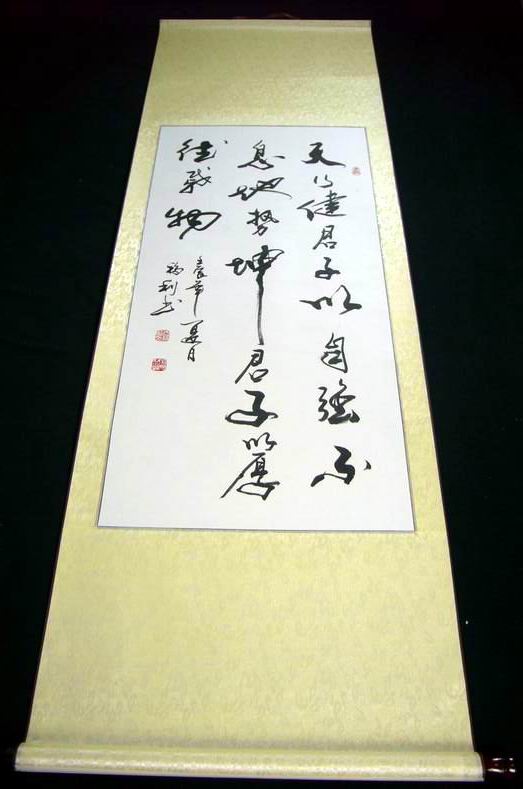 天行健君子以自强不
息地势坤君子以厚
德载物
夏日
利书